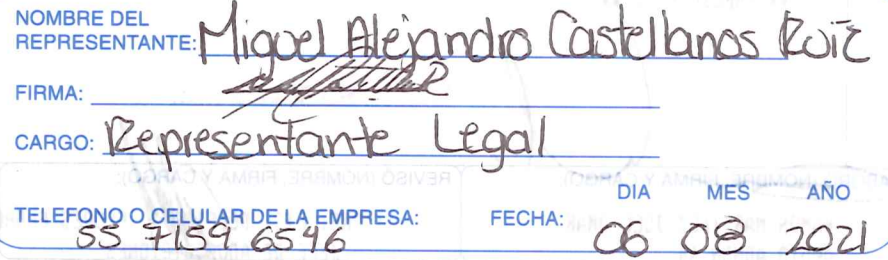 NOMBRE DEL
REPRESENTANTE: Miguel Alejandro Castellanos Ruiz
FIRMA:
CARGO: Representante Legal
REVISÓ (NOMBRE, FIRMA Y CARGO):
DIA MES AÑO
TELEFONO O CELULAR DE LA EMPRESA: FECHA:
55 7159 6546 06 08 2021